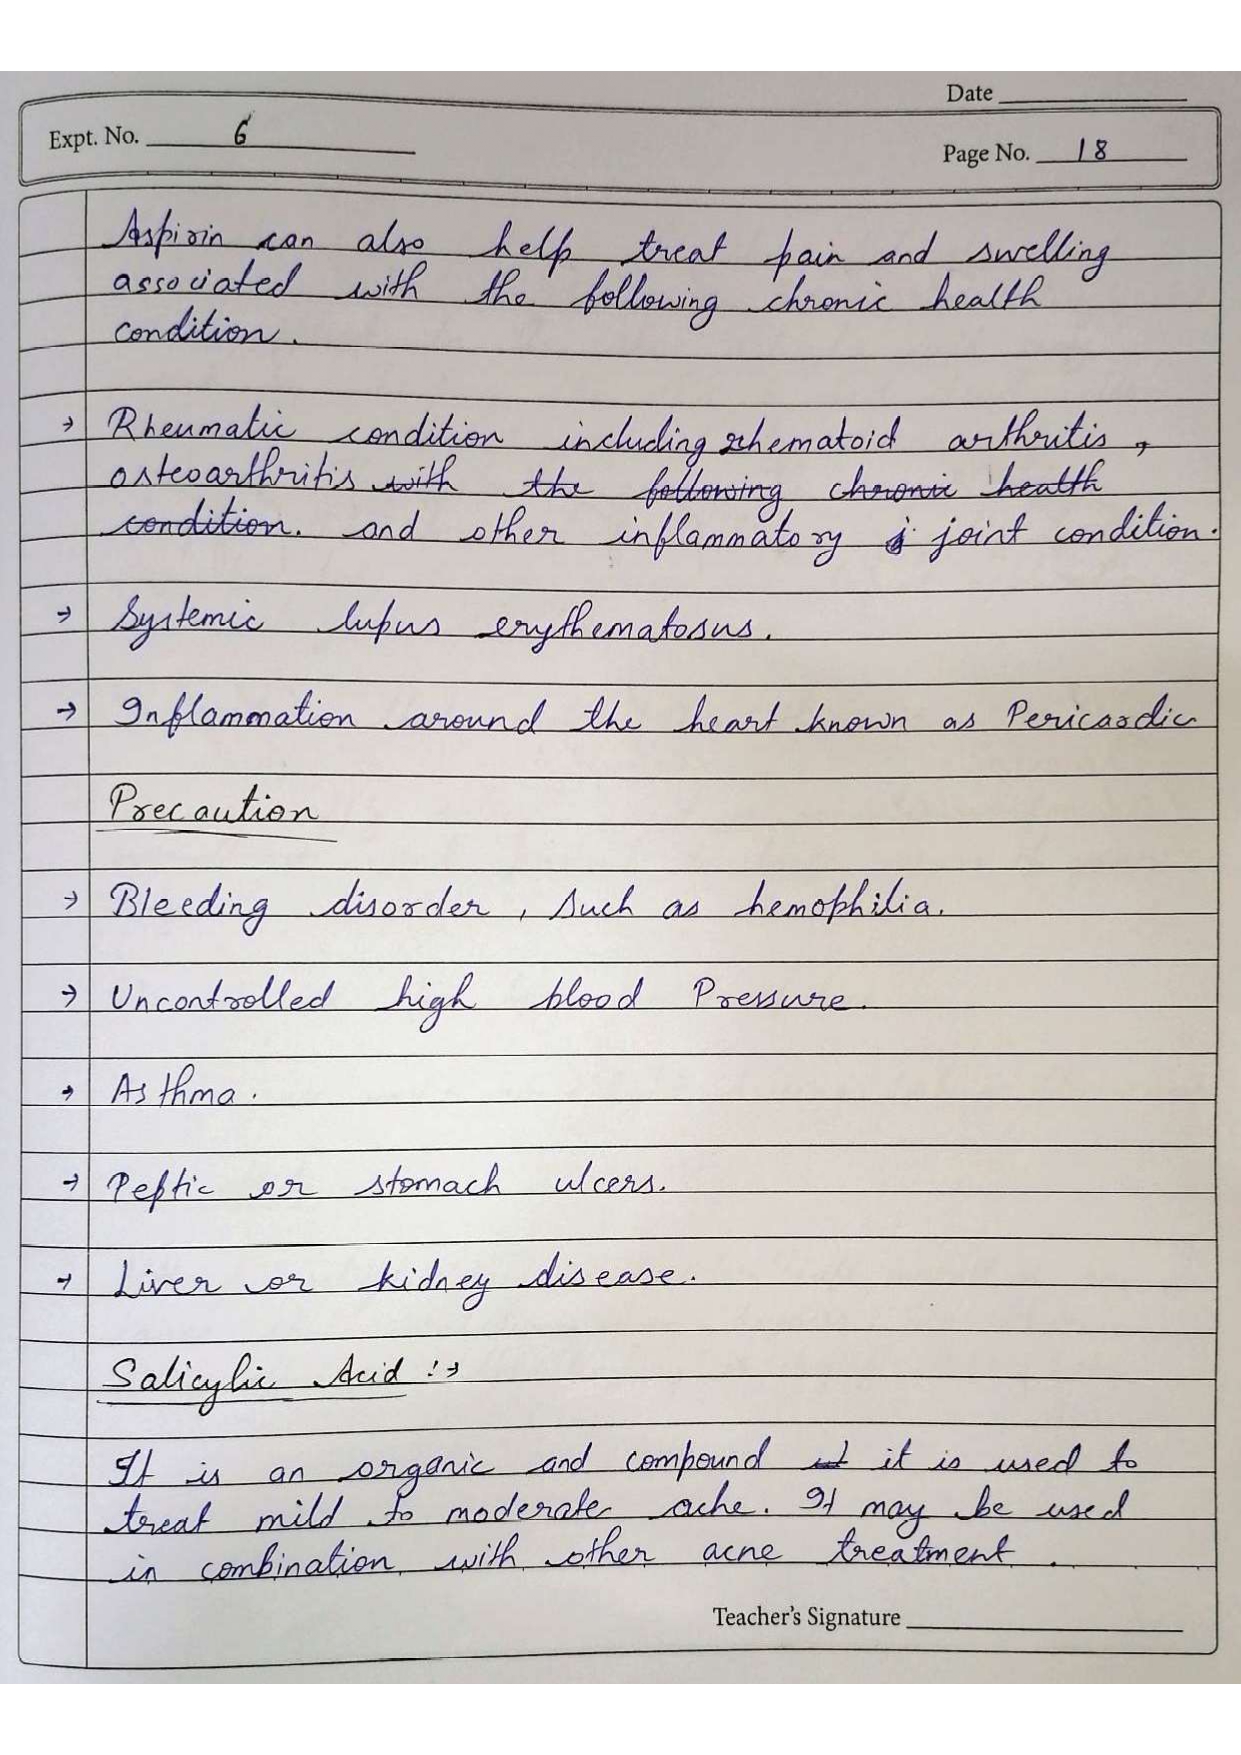 Date
Expt. No. 6
Page No. 18
Aspirin can also help treat pain and swelling
associated with the following chronic health
condition.
→ Rheumatic condition including rhematoid arthritis,
osteoarthritis with the following chronic health
condition. and other inflammatory j joint condition.
→ Systemic lupus erythematosus.
→ Inflammation around the heart known as Pericardic
Precaution
→ Bleeding disorder, such as hemophilia.
→ Uncontrolled high blood Pressure.
→ Asthma.
→ Peptic or stomach ulcers.
→ Liver or kidney disease.
Salicylic Acid :→
It is an organic and compound it it is used to
treat mild to moderate ache. It may be used
in combination with other acne treatment.
Teacher's Signature